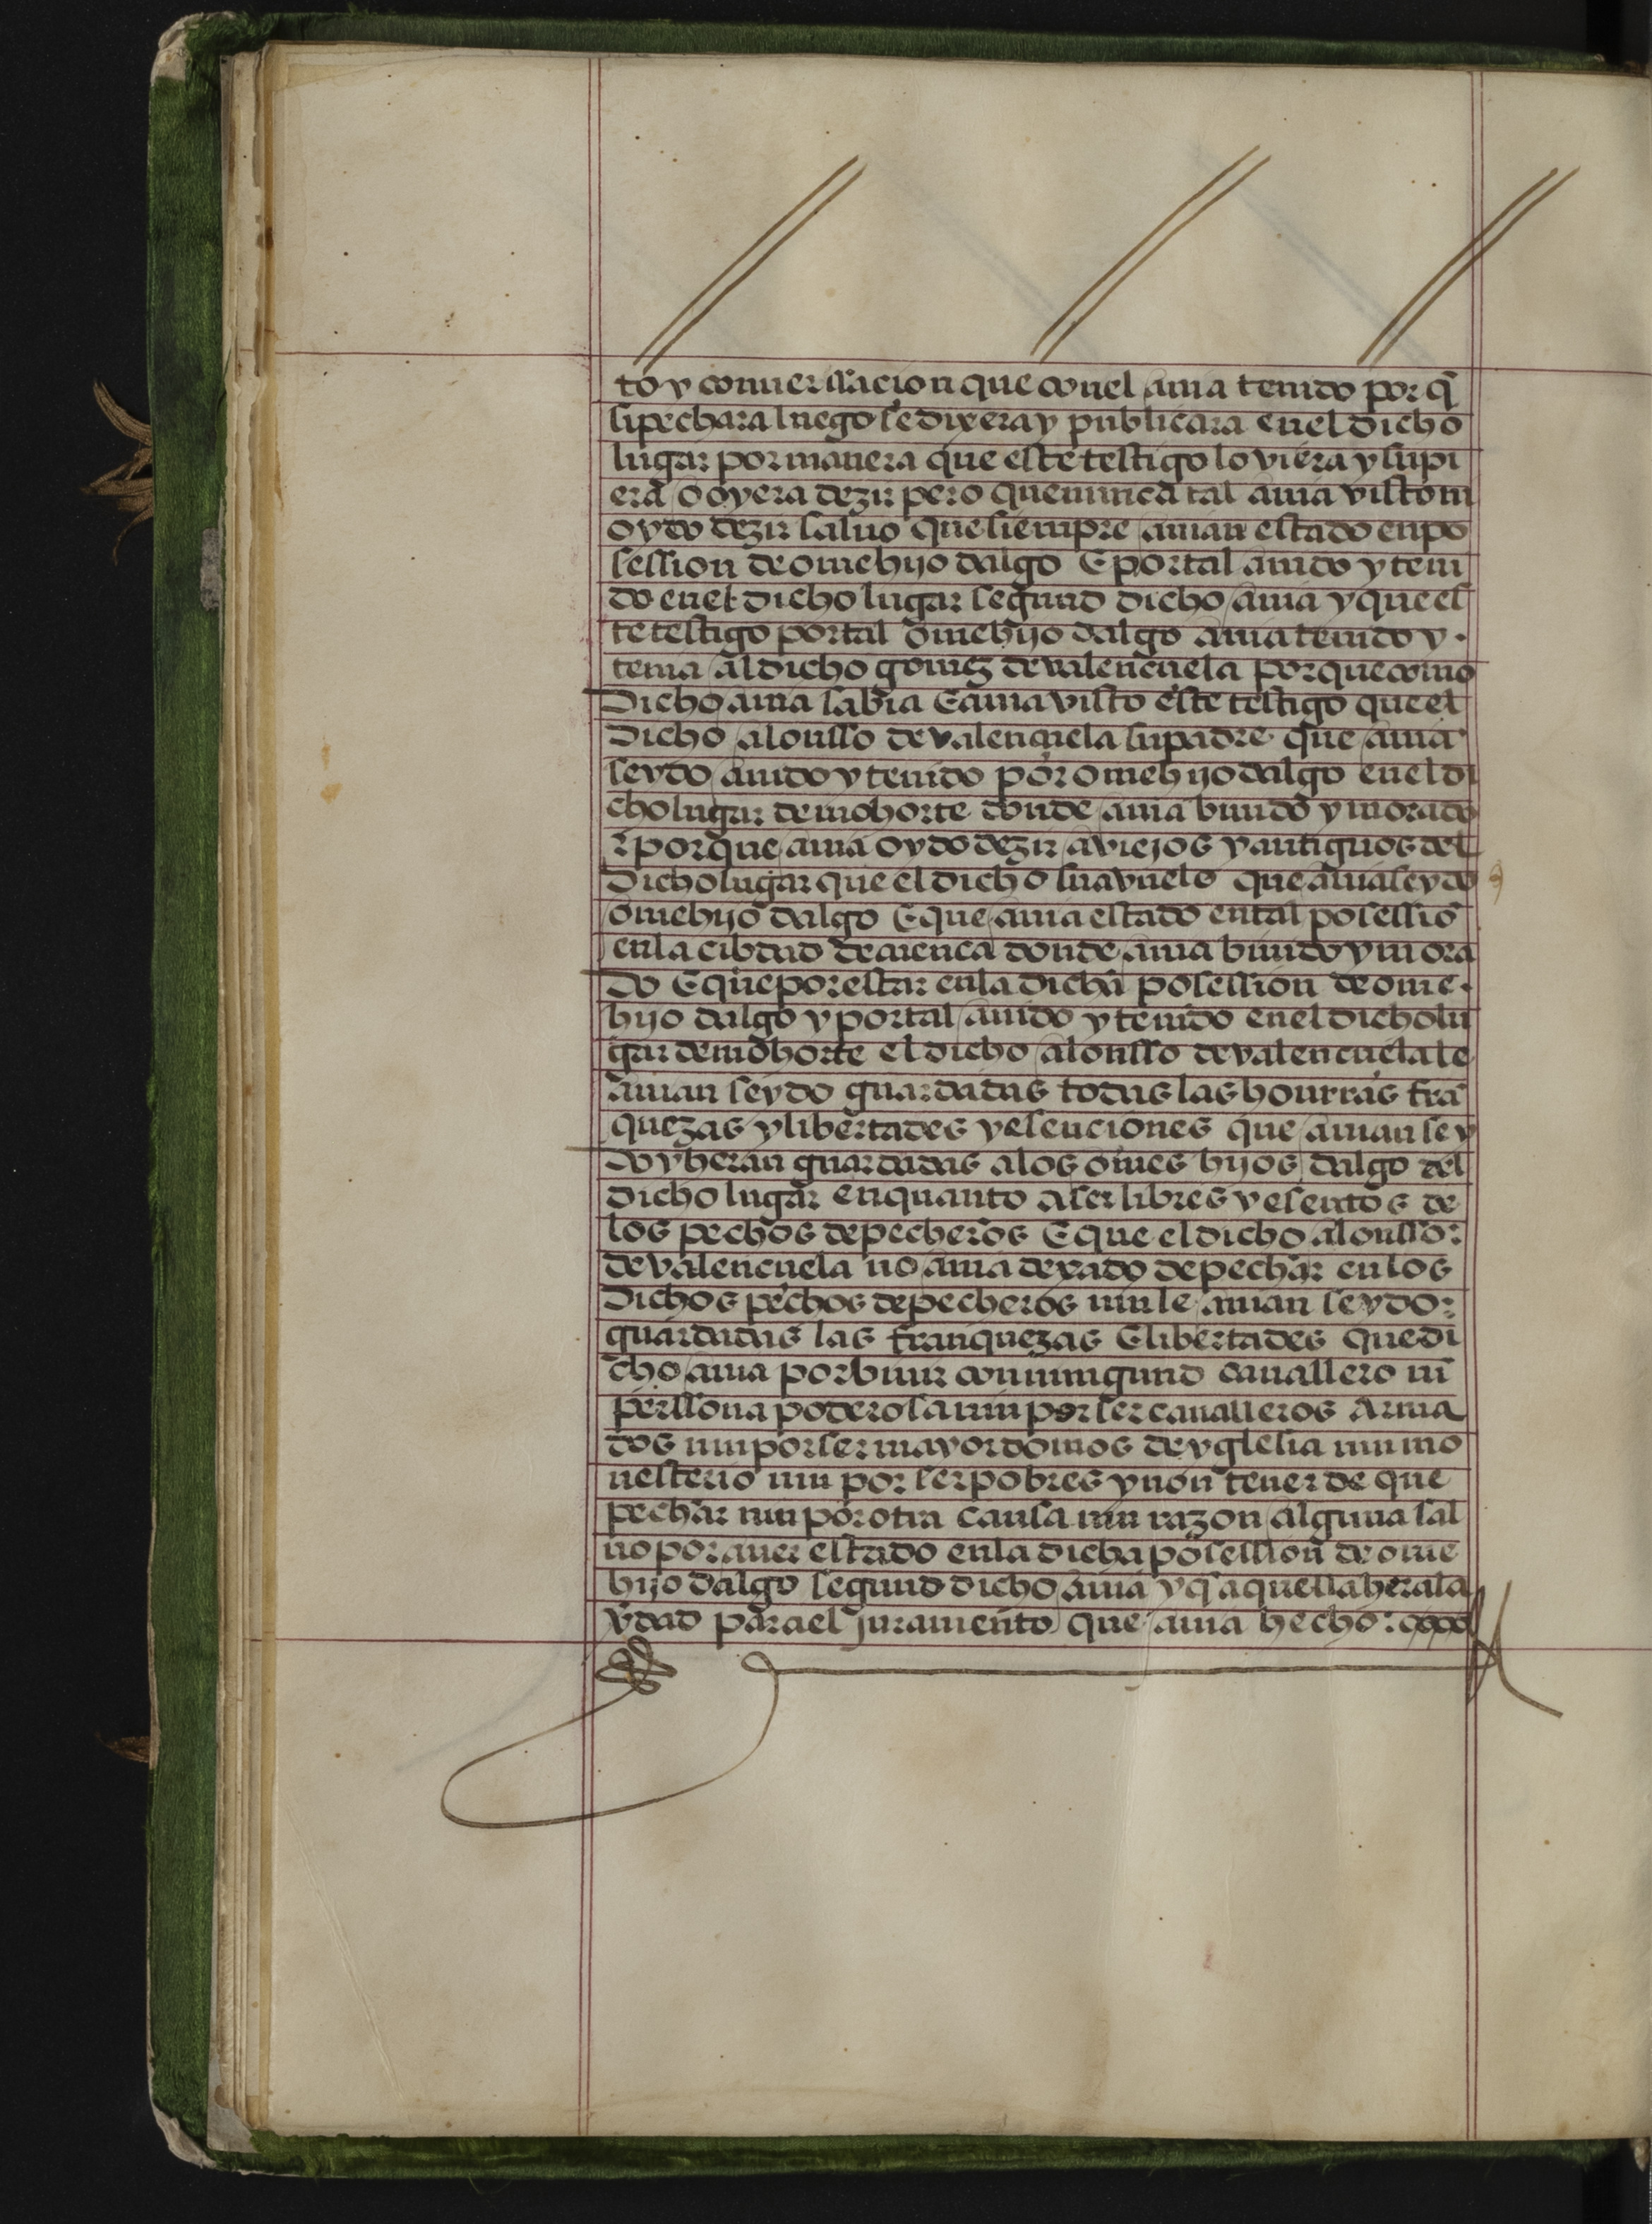 to y conuerssacion que con el auia tenido por q̃
si pechara luego se dixera y publicara en el dicho
lugar por manera que este testigo lo viera y supi
era o oyera dezir pero que nunca tal auia visto ni
oydo dezir saluo que siempre auian estado en po
session de ome hijo dalgo E por tal auido y teni
do en el dicho lugar segund dicho auia y que es
te testigo por tal ome hijo dalgo auia tenido y.
tenia al dicho gomez de valençuela porque como
dicho auia sabia E auia visto este testigo que el
dicho alonsso de valençuela su padre que auia
seydo auido y tenido por ome hijo dalgo en el di
cho lugar de mohorte donde auia biuido y morado
E porque auia oydo dezir a viejos y antiguos del
dicho lugar que el dicho su avuelo que auia seydo
ome hijo dalgo E que auia estado en tal posessiõ
en la cibdad de cuenca donde auia biuido y mora
do E que por estar en la dicha posession de ome.
hijo dalgo y por tal auido y tenido en el dicho lu
gar de mohorte el dicho alonsso de valençuela le
auian seydo guardadas todas las honrras frã
quezas y libertades y esenciones que auian sey
do y heran guardadas a los omes hijos dalgo del
dicho lugar en quanto a ser libres y esentos de
los pechos de pecheros E que el dicho alonsso:
de valençuela no auia dexado de pechar en los
dichos pechos de pecheros nin le auian seydo:
guardadas las franquezas E libertades que di
cho auia por biuir con ningund cauallero ni
perssona poderosa nin por ser caualleros arma
dos nin por ser mayordomos de yglesia nin mo
nesterio nin por ser pobres y non tener de que
pechar nin por otra causa nin razon alguna sal
uo por auer estado en la dicha posession de ome
hijo dalgo segund dicho auia y q̃ aquella hera la
v̄dad para el juramento que auia hecho: